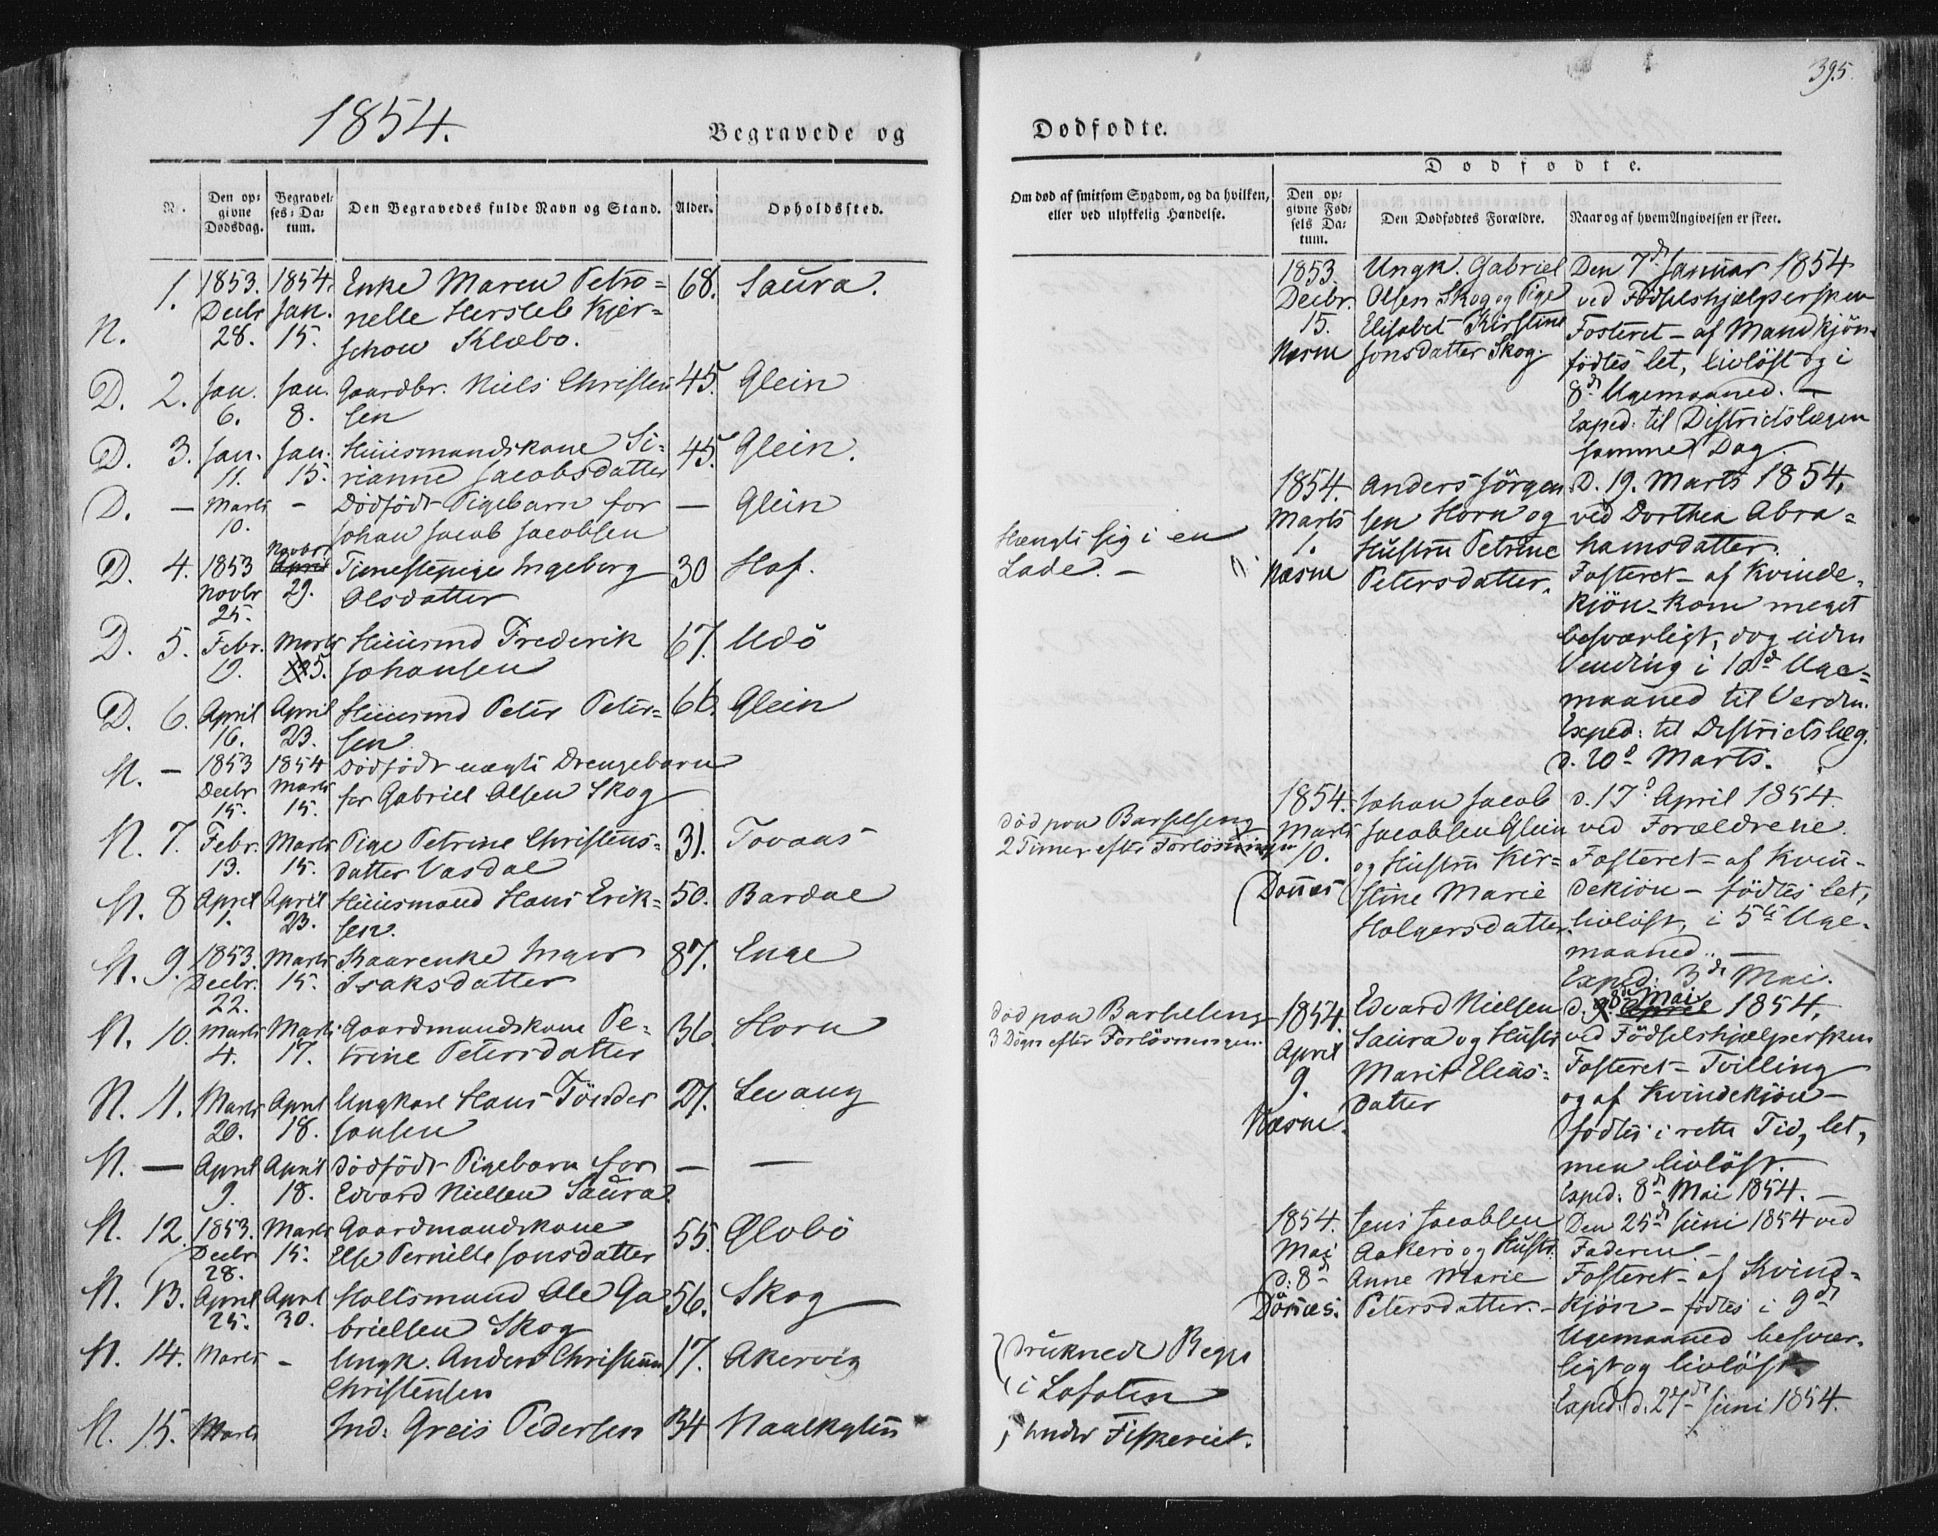 1854.
Begravede og
Nr.
Den op-
givne
Dødsdag.
Begravel-
ses-Da-
tum.
Den Begravedes fulde Navn og Stand.
Alder.
Opholdssted.
N. 1. 1853. 1854. Enke Maren Petro- 68. Saura.
Decbr Jan. nelle Hersleb Kjer-
28. 15. schow Klæbo.
D. 2. Jan. Jan. Gaardbr. Niels Christen 45. Glein
6. 8. sen
D. 3. Jan. Jan. Huusmandskone Si- 45. Glein.
11. 15. rianne Jacobsdatter
D. — Marts - Dödfödt Pigebarn for — Glein
10. Johan Jacob Jacobsen
D. 4. 1853 Novbr April Tjenestepige Ingeborg 30 Hof.
Novbr 29. Olsdatter
25.
D. 5. Febr. Marts Huusmd Frederik 67. Udö
5. Johansen
D. 6. April April Huusmd Peter Peter- 66. Glein
16. 23. sen
N. — 1853 1854 Dödfödt uægte Drengebarn
Decbr Marts for Gabriel Olsen Skog
15. 15.
N. 7. Febr. Marts Pige Petrine Christens- 31. Tovaas
13. 15. datter Vasdal
N. 8 April April Huusmand Hans Erik- 50. Bardal
1. 23. sen.
N. 9. 1853. Marts Kaarenke Inger 87. Enge
Decbr. 15. Isaksdatter
22.
N. 10. Marts Marts Gaardmandskone Pe- 36. Horn
4. 17. trine Petersdatter
N. 11. Marts April Ungkarl Hans Tönder 27. Levang
20. 18. Jonsen
N. — April April Dödfödt Pigebarn for — —
9. 18. Edvard Nielsen Saura.
N. 12. 1853. Marts Gaardmandskone 55. Ølobö
Decbr 15. Else Pernille Jonsdatter
28.
N. 13. April April Holtsmand Ole Ga 56. Skog
25. 30. brielsen Skog
N. 14. Marts - Ungk. Anders Christian 17. Akervig
Christensen
N. 15. Marts Ind. Greis Pedersen 34
395.
Dødfødte.
Om død af smitsom Sygdom, og da hvilken,
eller ved ulykkelig Hændelse.
Dødfødte.
Den op-
givne Fød-
sels Da-
tum.
Den Dødfødtes Forældre.
Naar og af hvem Angivelsen er skeet.
Hængte sig i en
Lade. —
död paa Barselseng
2 Timer efter Forlösningen
död paa Barselseng
3 Dögn efter Forlösningen.
Druknede Begge
i Lofoten
under Fiskeriet.
1853. Ungk. Gabriel Den 7de Januar 1854
Decbr. Olsen Skog og Pige ved Födselshjælpersken
15. Elisabet Kirstine Fosteret - af Mandkjön -
Næsne Jonsdatter Skog. födtes let, livlöst og i
8de Ugemaaned. —
Exped: til Districtslægen
samme Dag.
1854. Anders Jörgen D. 19. Marts 1854,
Marts sen Horn og ved Dorthea Abra-
1. Hustru Petrine hamsdatter.
Næsne Petersdatter. Fosteret - af Kvinde-
kjön - kom meget
besværligt, dog uden
Vending i 10de Uge-
maaned til Verden.
Exped: til Districtslæg.
d. 20de Marts.
1854. Johan Jacob d. 17de April 1854
Marts Jacobsen Glein ved Forældrene.
10. og Hustru Kir- Fosteret - af Kvin-
Dönnes stine Marie dekjön - födtes let,
Holgersdatter. livlöst, i 5te Uge-
maaned. —
Exped. 3de Mai.
1854. Edvard Nielsen d. 8de Mai 1854,
April Saura og Hustr ved Födselshjælpersken
9. Marit Elias- Fosteret - Tvilling
Næsne. datter og af Kvindekjön -
födtes i rette Tid, let,
men livlöst.
Exped: 8de Mai 1854. —
1854. Jens Jacobsen Den 25de Juni 1854 ved
Mai Aakerö og Hustr. Faderen -
d. 8de Anne Marie Fosteret - af Kvind-
Dönnes. Petersdatter. - kjön - födtes i 9de
Ugemaaned besvær-
ligt og livlöst.
Exped. d. 27de Juni 1854.